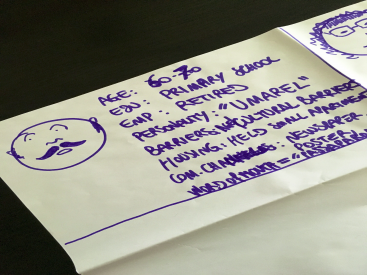 AGE: 60-70
EDU: PRIMARY SCHOOL
EMP: RETIRED
PERSONALITY: "UMAREL"
BARRIERS: CULTURAL BARRIERS
HOUSING: HELD SMALL APARTMENT
COM. CHANNELS: NEWSPAPER
POSTER
WORD OF MOUTH =